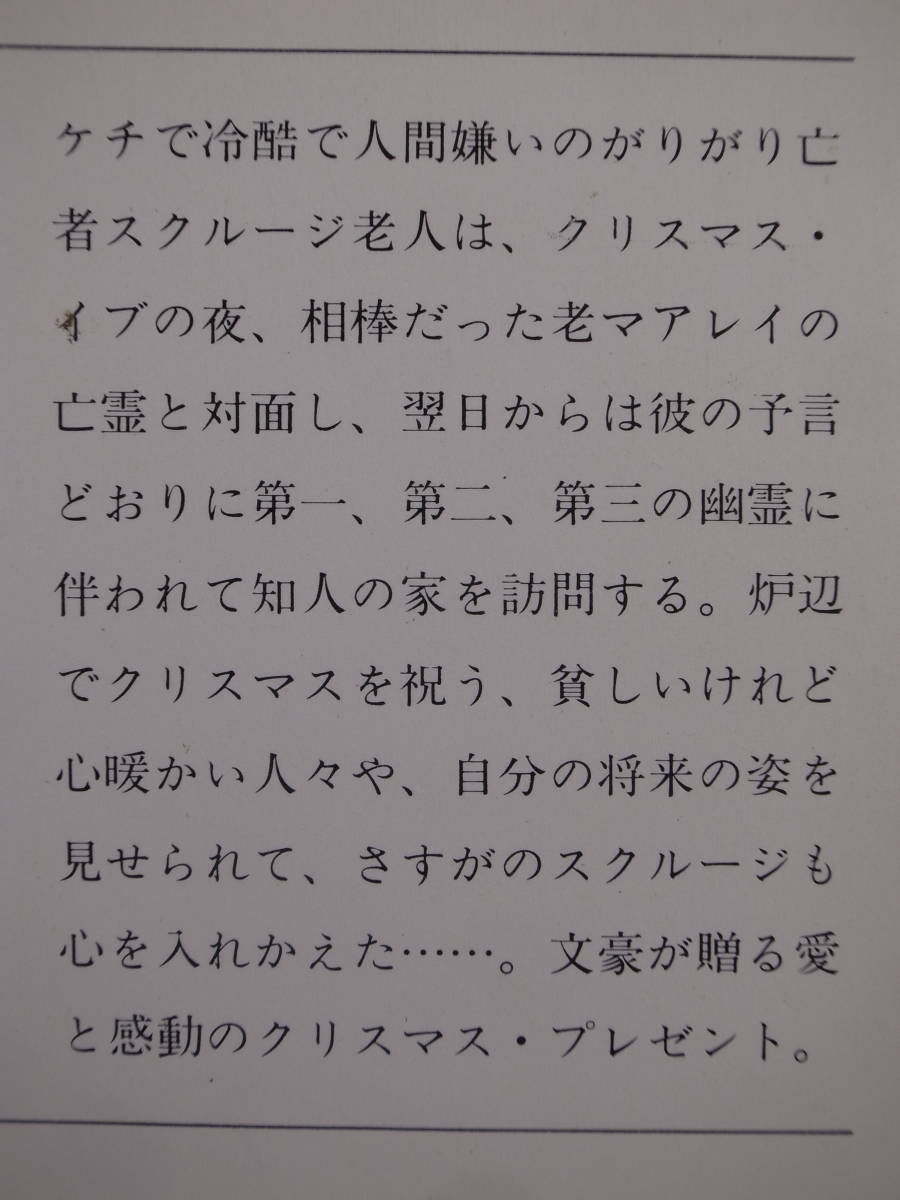 ケチで冷酷で人間嫌いのがりがり亡
者スクルージ老人は、クリスマス・
イブの夜、相棒だった老マアレイの
亡霊と対面し、翌日からは彼の予言
どおりに第一、第二、第三の幽霊に
伴われて知人の家を訪問する。炉辺
でクリスマスを祝う、貧しいけれど
心暖かい人々や、自分の将来の姿を
見せられて、さすがのスクルージも
心を入れかえた……。文豪が贈る愛
と感動のクリスマス・プレゼント。